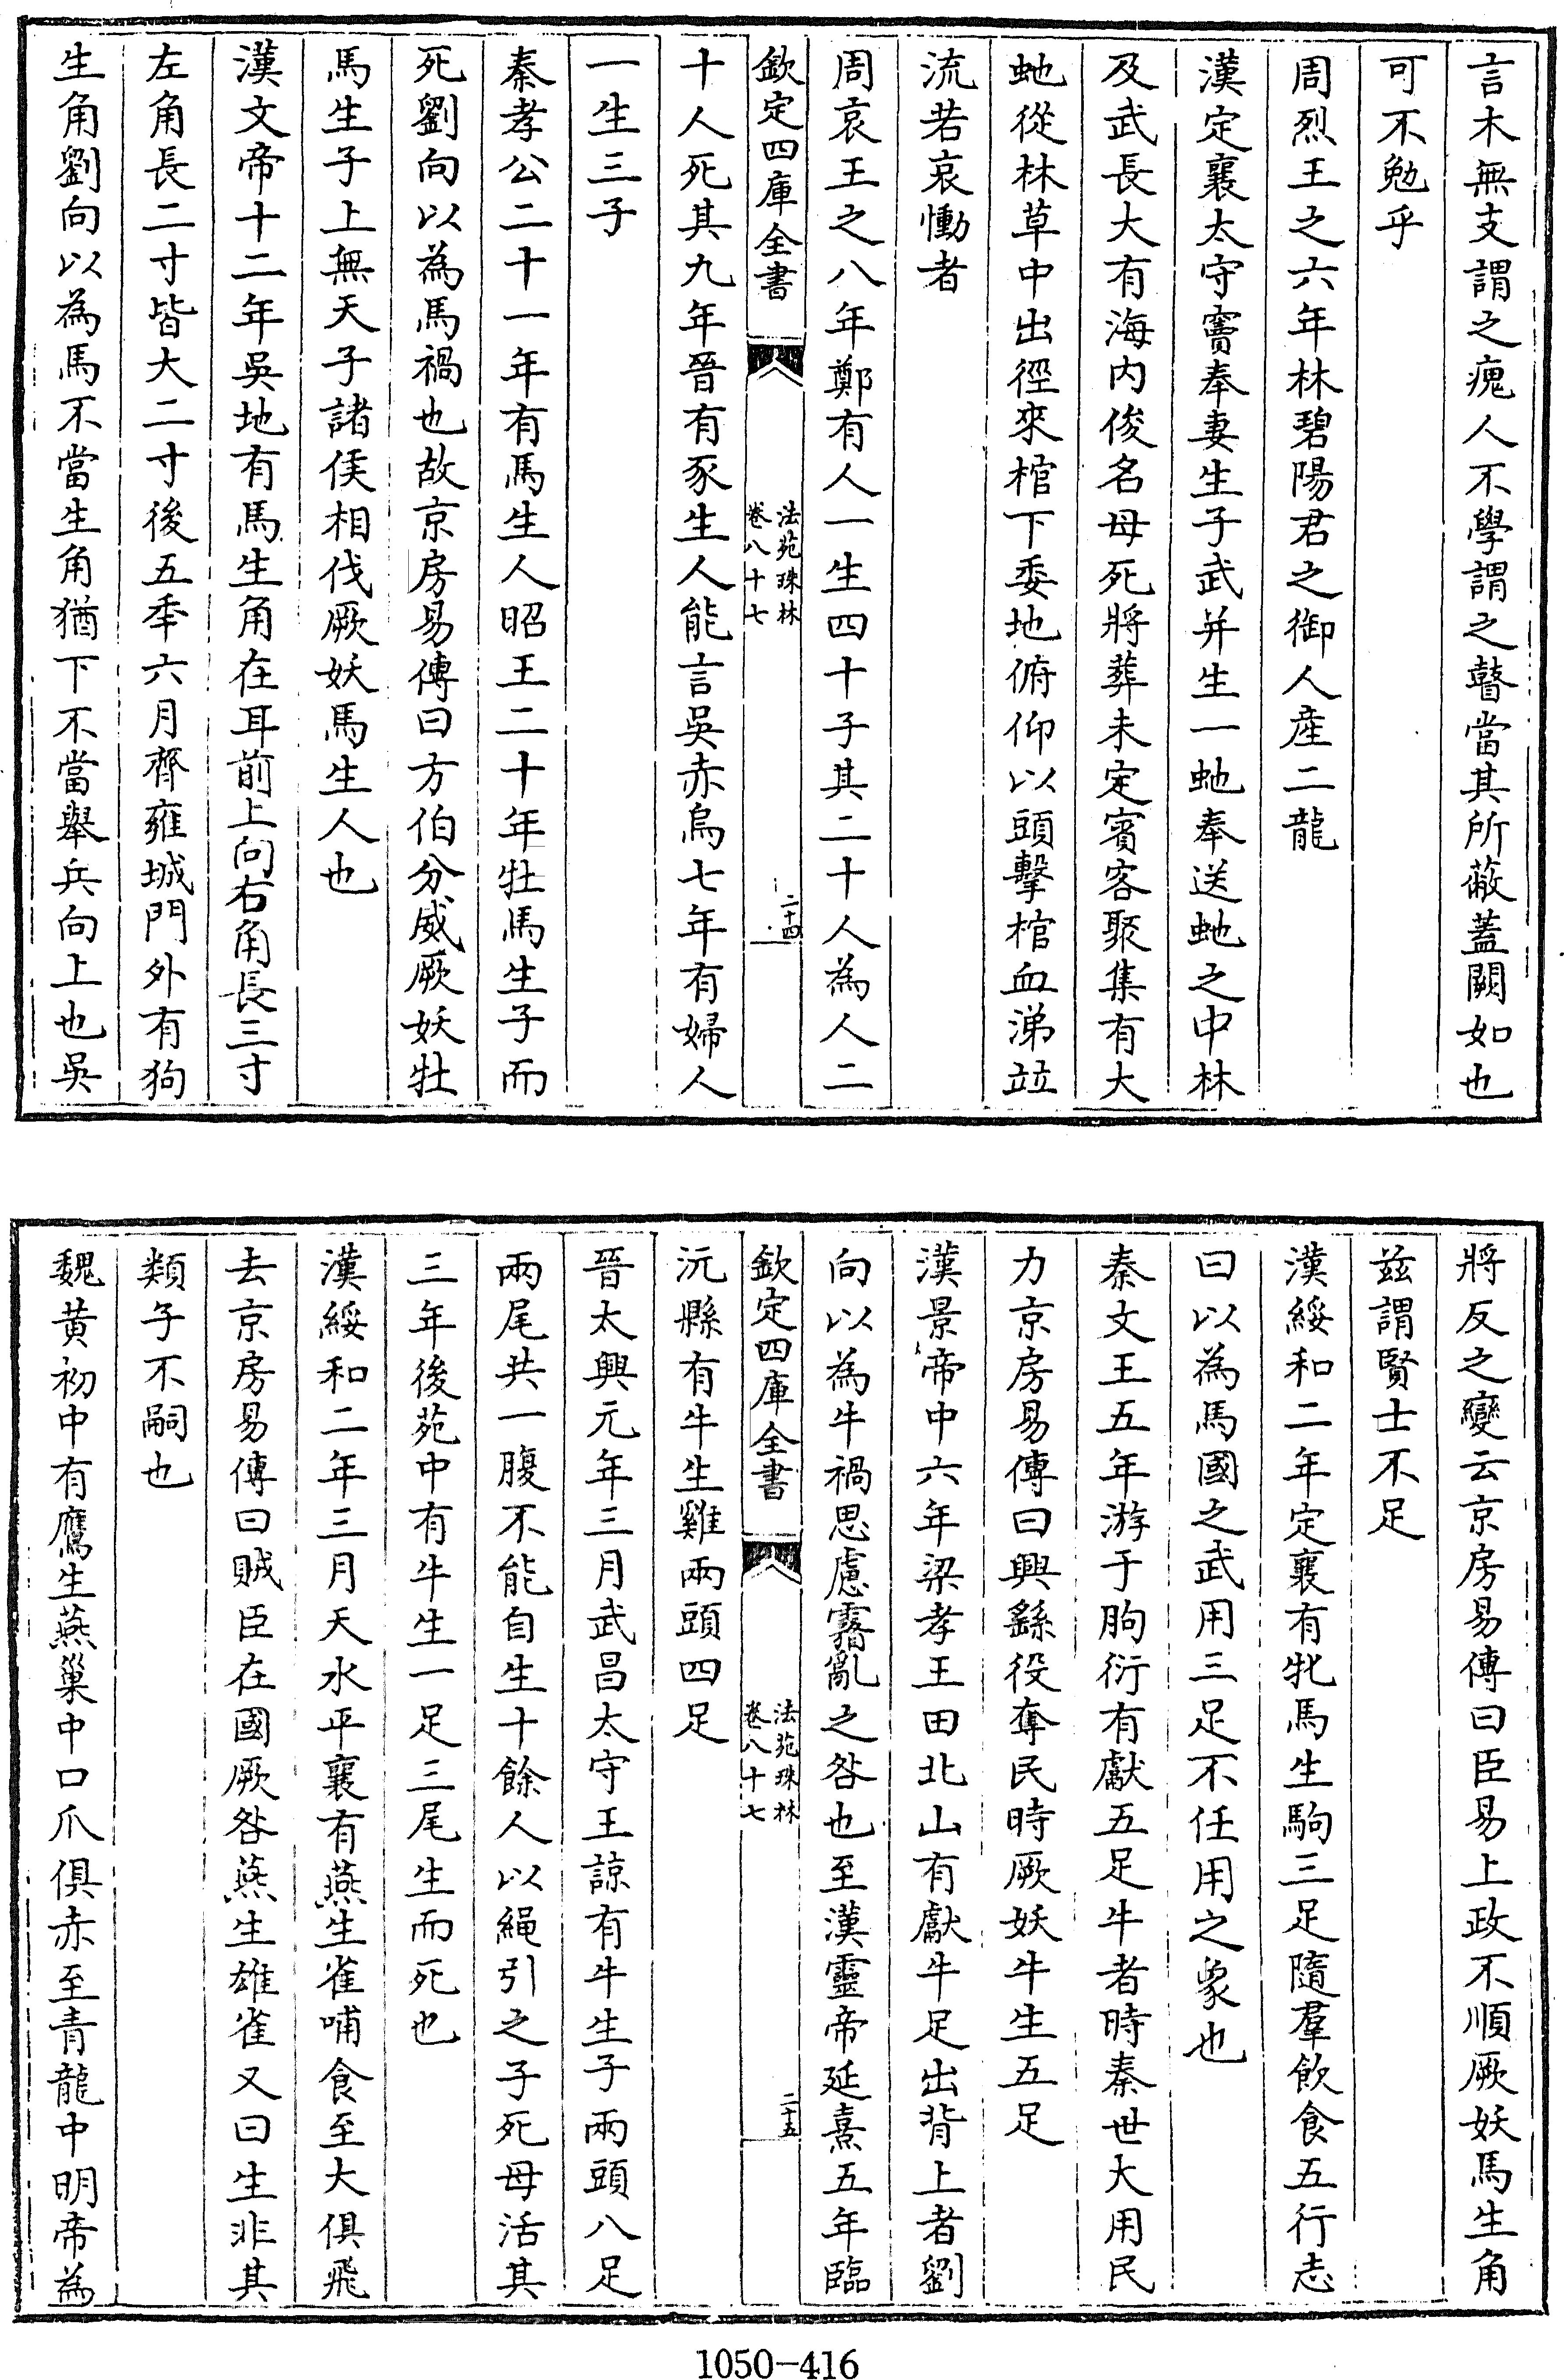 言木無支謂之瘣人不學謂之瞽當其所蔽蓋闕如也
可不勉乎
周烈王之六年林碧陽君之御人産二龍
漢定襄太守竇奉妻生子武并生一虵奉送虵之中林
及武長大有海内俊名母死將葬未定賓客聚集有大
虵從林草中出徑來棺下委地俯仰以頭擊棺血涕竝
流若哀慟者
周哀王之八年鄭有人一生四十子其二十人為人二
欽定四庫全書
法苑珠林
卷八十七
二十四
十人死其九年晉有豕生人能言吳赤烏七年有婦人
一生三子
秦孝公二十一年有馬生人昭王二十年牡馬生子而
死劉向以為馬禍也故京房易傳曰方伯分威厥妖牡
馬生子上無天子諸侯相伐厥妖馬生人也
漢文帝十二年吳地有馬生角在耳前上向右角長三寸
左角長二寸皆大二寸後五年六月齊雍城門外有狗
生角劉向以為馬不當生角猶下不當舉兵向上也吳
將反之變云京房易傳曰臣易上政不順厥妖馬生角
兹謂賢士不足
漢綏和二年定襄有牝馬生駒三足隨羣飲食五行志
曰以為馬國之武用三足不任用之象也
秦文王五年游于朐衍有獻五足牛者時秦世大用民
力京房易傳曰興繇役奪民時厥妖牛生五足
漢景帝中六年梁孝王田北山有獻牛足出背上者劉
向以為牛禍思慮霿亂之咎也至漢靈帝延熹五年臨
欽定四庫全書
法苑珠林
卷八十七
二十五
沅縣有牛生雞兩頭四足
晉太興元年三月武昌太守王諒有牛生子兩頭八足
兩尾共一腹不能自生十餘人以繩引之子死母活其
三年後苑中有牛生一足三尾生而死也
漢綏和二年三月天水平襄有燕生雀哺食至大俱飛
去京房易傳曰賊臣在國厥咎燕生雄雀又曰生非其
類子不嗣也
魏黄初中有鷹生燕巢中口爪俱赤至青龍中明帝為
1050-416